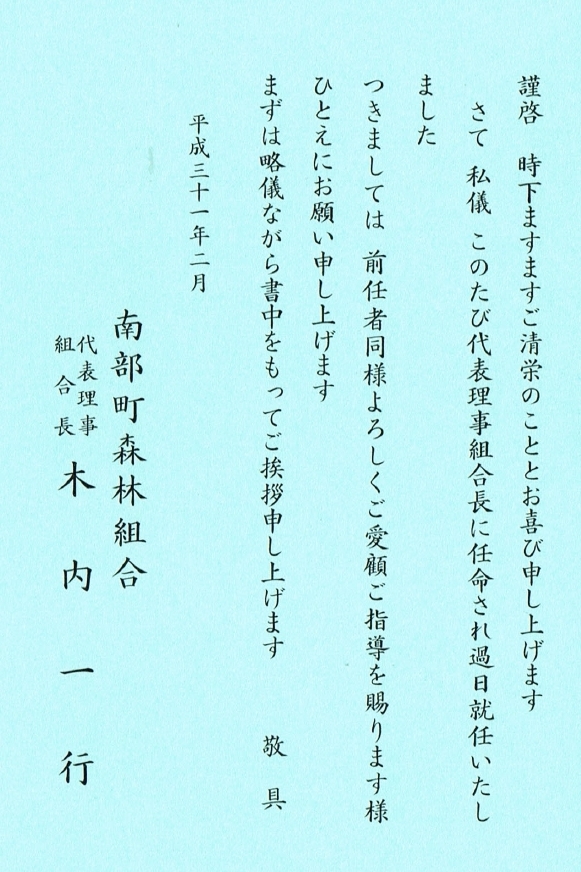 謹啓　時下ますますご清栄のこととお喜び申し上げます
さて　私儀　このたび代表理事組合長に任命され過日就任いたし
ました
つきましては　前任者同様よろしくご愛顧ご指導を賜ります様
ひとえにお願い申し上げます
まずは略儀ながら書中をもってご挨拶申し上げます　敬具
平成三十一年二月
南部町森林組合
代表理事
組合長　木内一行